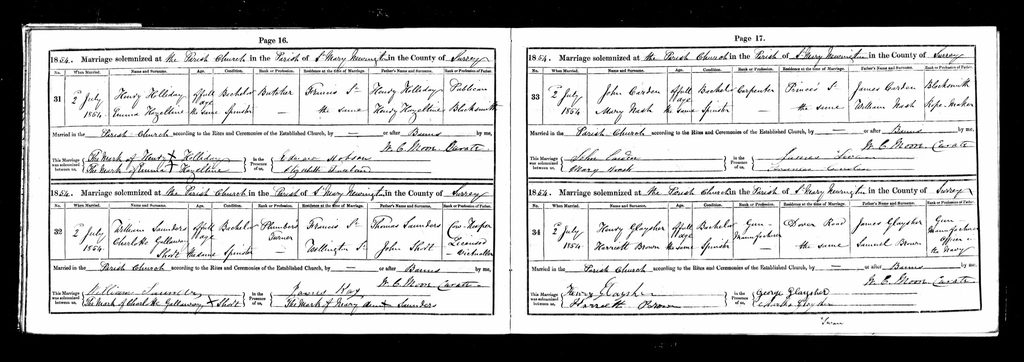 Page 16.
1854. Marriage solemnized at the Parish Church in the Parish of St Mary Newington in the County of Surrey
No. When Married. Name and Surname. Age. Condition. Rank or Profession. Residence at the time of Marriage. Father's Name and Surname. Rank or Profession of Father.
31 2 July 1854 Henry Holliday of full age Bachelor Butcher Francis St Henry Holliday Publican
Emma Hazeltine the same Spinster — the same Henry Hazeltine Blacksmith
Married in the Parish Church according to the Rites and Ceremonies of the Established Church, by — or after Banns by me,
W. C. Moore Curate
This Marriage was solemnized between us, The Mark of Henry X Holliday
The Mark of Emma X Hazeltine
in the Presence of us, Edward Hobson
1854. Marriage solemnized at the Parish Church in the Parish of St Mary Newington in the County of Surrey
No. When Married. Name and Surname. Age. Condition. Rank or Profession. Residence at the time of Marriage. Father's Name and Surname. Rank or Profession of Father.
32 2 July 1854 William Saunders of full age Bachelor Francis St Thomas Saunders Cow Keeper
Charlotte Galloway Shott the same Spinster — Wellington St John Shott Licensed Victualler
Married in the Parish Church according to the Rites and Ceremonies of the Established Church, by — or after Banns by me,
W. C. Moore Curate
This Marriage was solemnized between us, William Saunders
The Mark of Charlotte Galloway X Shott
in the Presence of us, James Hay
The Mark of Mary Ann X Saunders
Page 17.
1854. Marriage solemnized at the Parish Church in the Parish of St Mary Newington in the County of Surrey
No. When Married. Name and Surname. Age. Condition. Rank or Profession. Residence at the time of Marriage. Father's Name and Surname. Rank or Profession of Father.
33 2 July 1854 John Carden of full age Bachelor Carpenter Princes St James Carden Blacksmith
Mary Nash the same Spinster — the same William Nash Rope Maker
Married in the Parish Church according to the Rites and Ceremonies of the Established Church, by — or after Banns by me,
W. C. Moore Curate
This Marriage was solemnized between us, John Carden
Mary Nash
in the Presence of us, James Swan
1854. Marriage solemnized at the Parish Church in the Parish of St Mary Newington in the County of Surrey
No. When Married. Name and Surname. Age. Condition. Rank or Profession. Residence at the time of Marriage. Father's Name and Surname. Rank or Profession of Father.
34 2 July 1854 Henry Glaysher of full age Bachelor Gun Manufacturer Dover Road James Glaysher Gun Manufacturer
Harriett Brown the same Spinster — the same Samuel Brown Officer in the Navy
Married in the Parish Church according to the Rites and Ceremonies of the Established Church, by — or after Banns by me,
W. C. Moore Curate
This Marriage was solemnized between us, Henry Glaysher
Harriett Brown
in the Presence of us, George Glaysher
Charles Glaysher
Swan